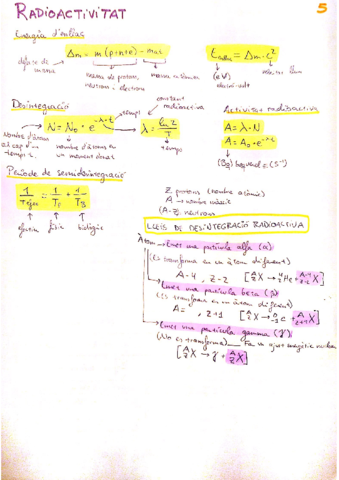 RADIOACTIVITAT
5
Energia d'enllaç
Δm = m(p+n+e) - mnus
E = Δm · c²
defecte de massa
massa de protons, neutrons i electrons
massa atòmica
(eV)
electró-volt
velocitat llum
Desintegració
N = N₀ · e^(-λ·t)
temps
constant radioactiva
λ = ln2/T
temps
Nombre d'àtoms al cap d'un temps t.
nombre d'àtoms en un moment donat
Activitat radioactiva
A = λ · N
A = A₀ · e^(-λ·t)
(Bq) bequerel = (s⁻¹)
Període de semidesintegració
1/Tefec = 1/TF + 1/TB
efectiu
físic
biològic
Z protons (nombre atòmic)
A → nombre màssic
(A-Z) neutrons
LLEIS DE DESINTEGRACIÓ RADIOACTIVA
Àtom → Emet una partícula alfa (α)
(Es transforma en un àtom diferent)
A-4, Z-2 [ᴬ_Z X → ⁴₂He + ᴬ⁻⁴_Z₋₂ X]
→ Emet una partícula beta (β)
(Es transforma en un àtom diferent)
A=, Z+1 [ᴬ_Z X → ⁰₋₁e + ᴬ_Z₊₁ X]
→ Emet una partícula gamma (γ)
(No es transforma)
[ᴬ_Z X → γ + ᴬ_Z X]